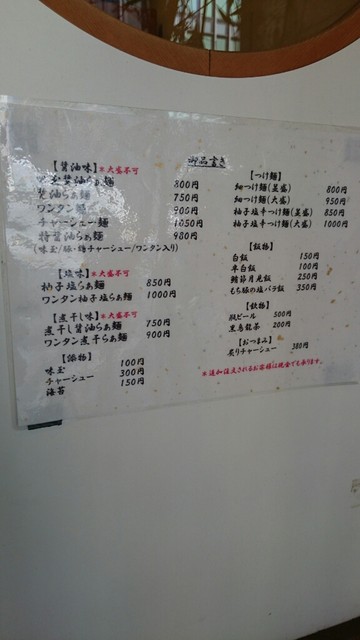 御品書き
【醤油味】※大盛不可
味玉醤油らぁ麺 800円
醤油らぁ麺 750円
ワンタン麺 900円
チャーシュー麺 1050円
特醤油らぁ麺 980円
(味玉/豚・鶏チャーシュー/ワンタン入り)
【塩味】※大盛不可
柚子塩らぁ麺 850円
ワンタン柚子塩らぁ麺 1000円
【煮干し味】※大盛不可
煮干し醤油らぁ麺 750円
ワンタン煮干らぁ麺 900円
【添物】
味玉 100円
チャーシュー 300円
海苔 150円
【つけ麺】
細つけ麺(並盛) 800円
細つけ麺(大盛) 950円
柚子塩辛つけ麺(並盛) 850円
柚子塩辛つけ麺(大盛) 1000円
【飯物】
白飯 150円
半白飯 100円
鰹節月見飯 250円
もち豚の塩バラ飯 350円
【飲物】
瓶ビール 500円
黒烏龍茶 200円
【おつまみ】
炙りチャーシュー 380円
※追加注文されるお客様は現金でも承ります。